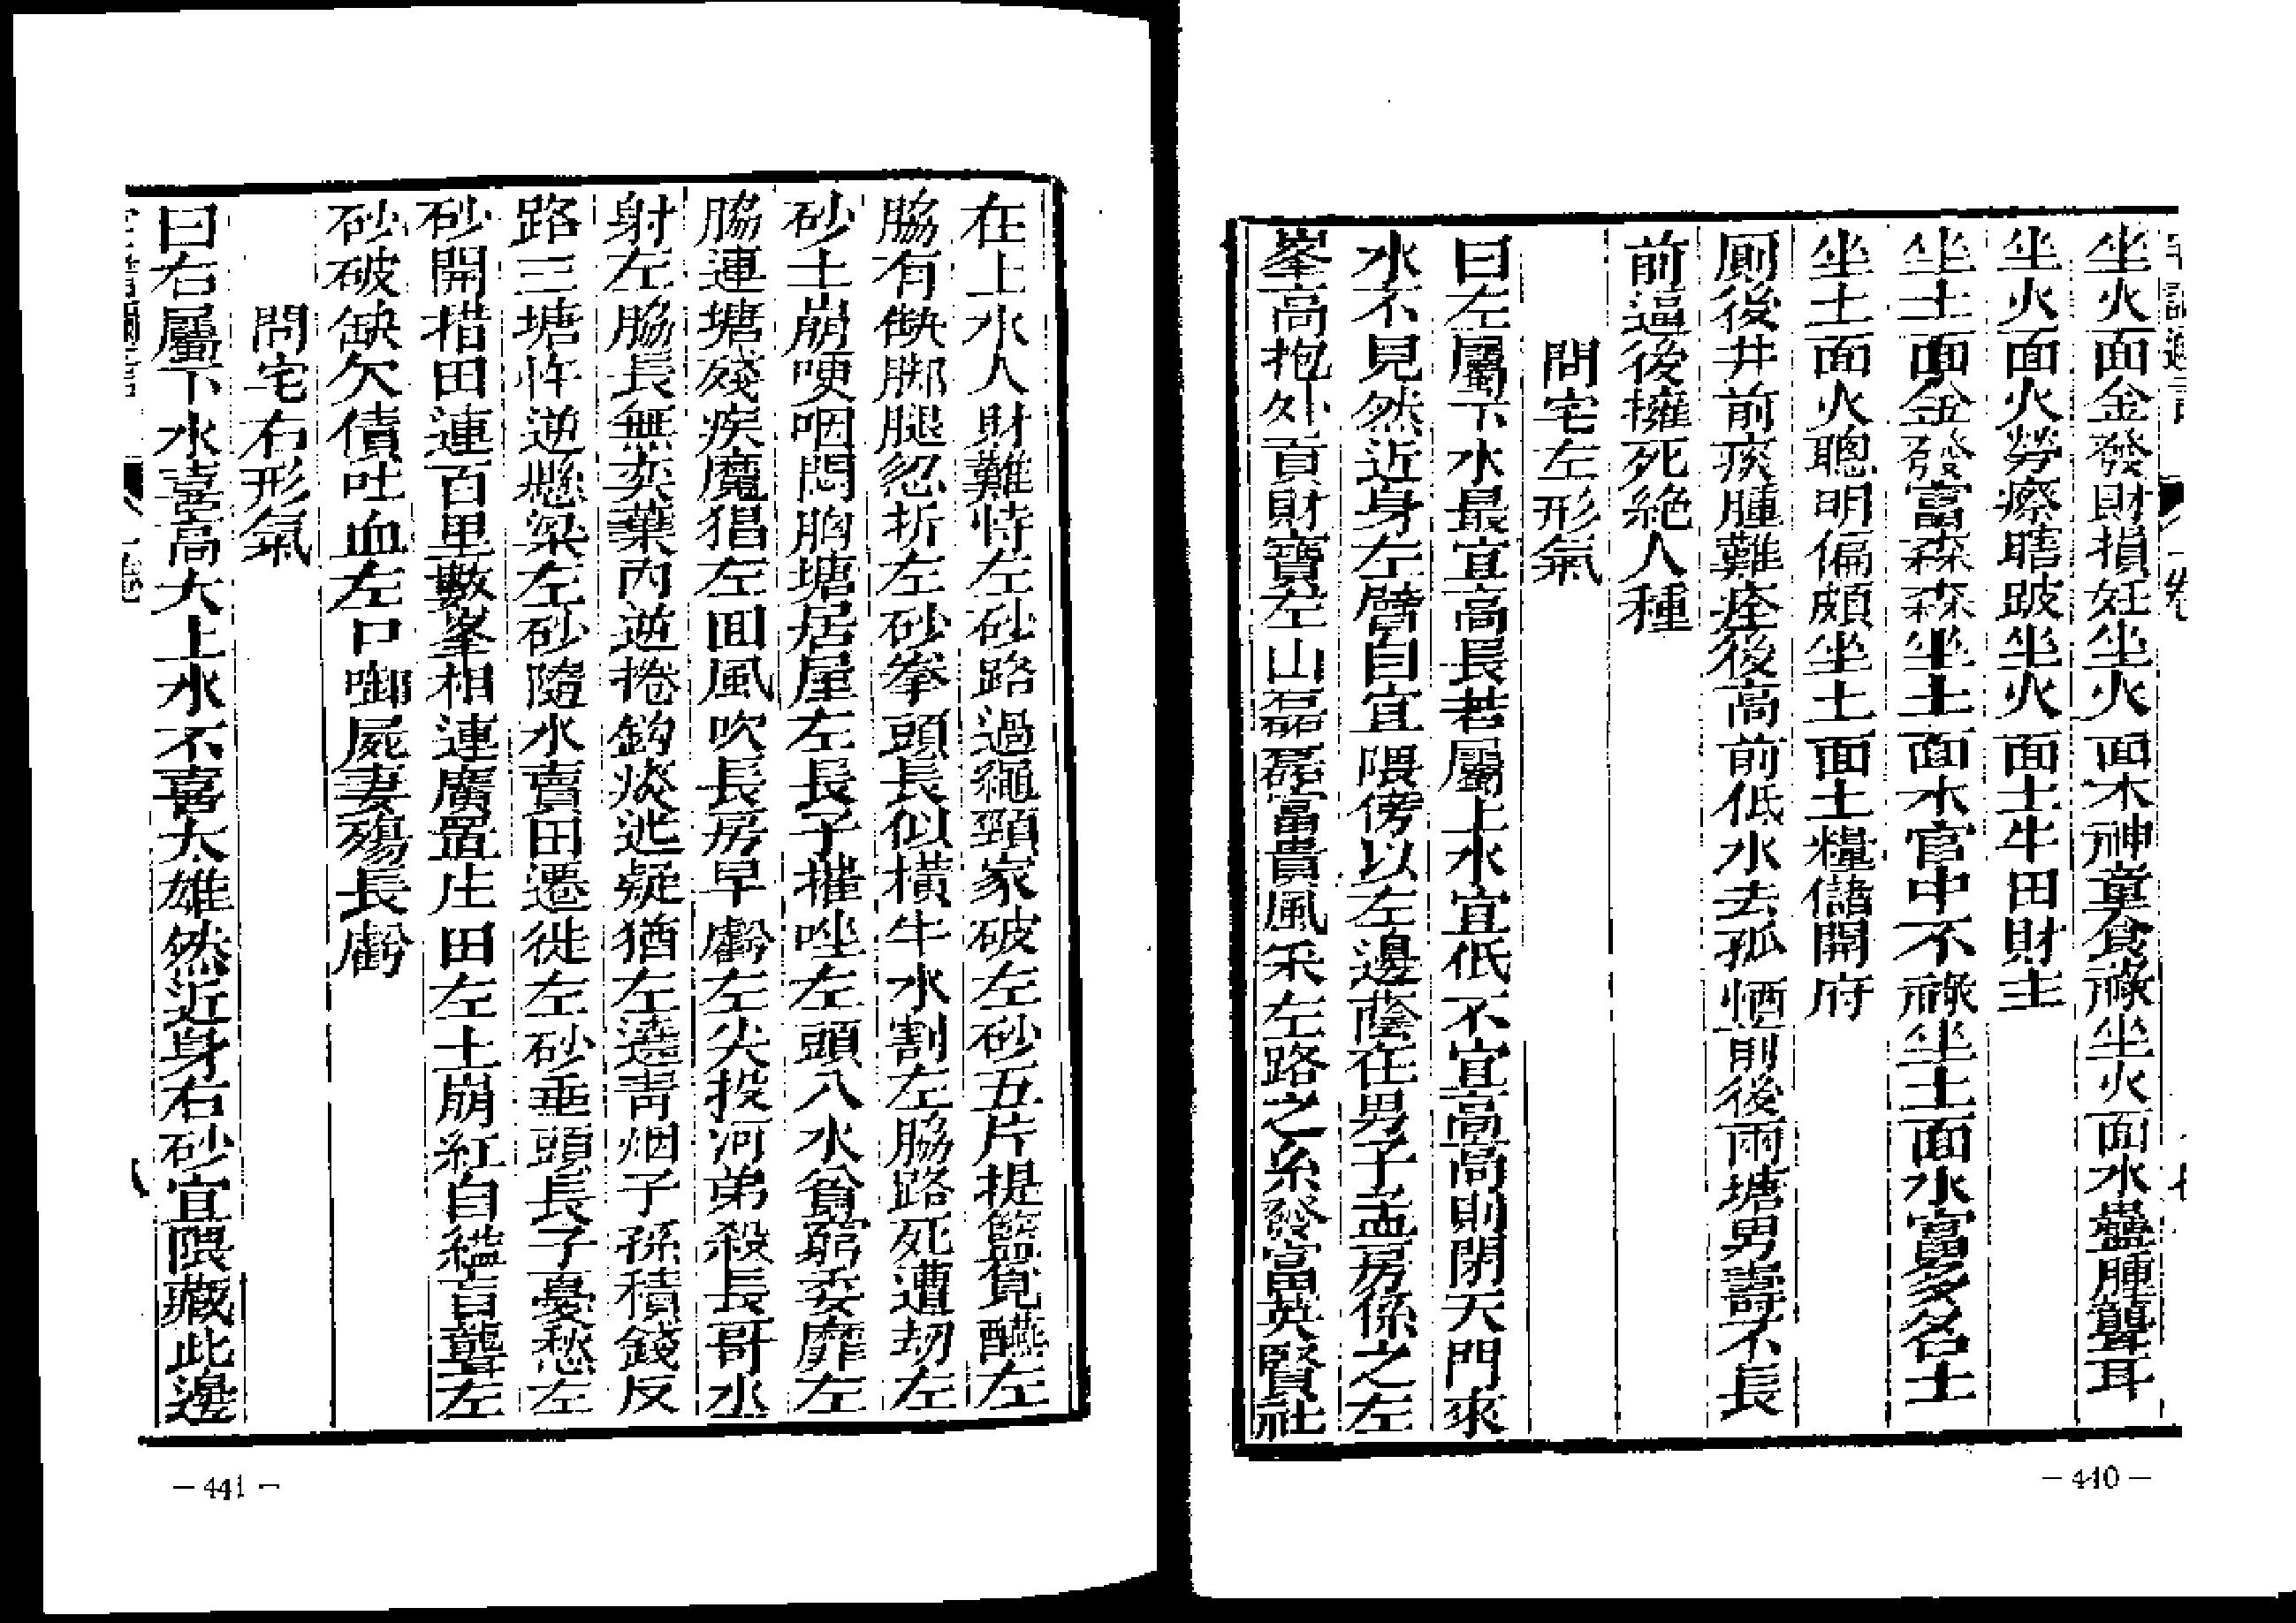 坐火面金發財損妊坐火面木神童食祿坐火面水蠱腫聾耳
坐火面火勞瘵瞎跛坐火面土牛田財主
坐土面金發富森森坐土面木官中不祿坐土面水富多名士
坐土面火聰明偏頗坐土面土糧儲開府
厠後井前痰腫難痊後高前低水去孤恓前後兩塘男壽不長
前逼後擁死絕人種
問宅左形氣
曰左屬下水最宜高長若屬上水宜低不宜高高則閉天門來
水不見然近身左臂自宜隈傍以左邊蔭在男子孟房係之左
峯高抱外貢財寶左山磊磊富貴風采左路之糸發富英賢社
— 440 —
在上水人財難恃左砂路過繩頸家破左砂五片提籃覓醼左
脇有缺脚腿忽折左砂拳頭長似橫牛水割左脇路死遭刼左
砂土崩哽咽悶胸塘居屋左長子摧㘸左頭八水貧窮委靡左
脇連塘殘疾魔猖左囬風吹長房早虧左尖投河弟殺長哥水
射左脇長無奕葉內逆捲鈎痰迯疑猶左遶靑烟子孫積錢反
路三塘忤逆懸梁左砂隨水賣田遷徙左砂垂頭長子憂愁左
砂開措田連百里數峯相連廣置庄田左土崩紅自縊盲聾左
砂破缺欠債吐血左口啣屍妻殤長虧
問宅右形氣
曰右屬下水喜高大上水不喜太雄然近身右砂宜隈藏此邊
八
— 441 —